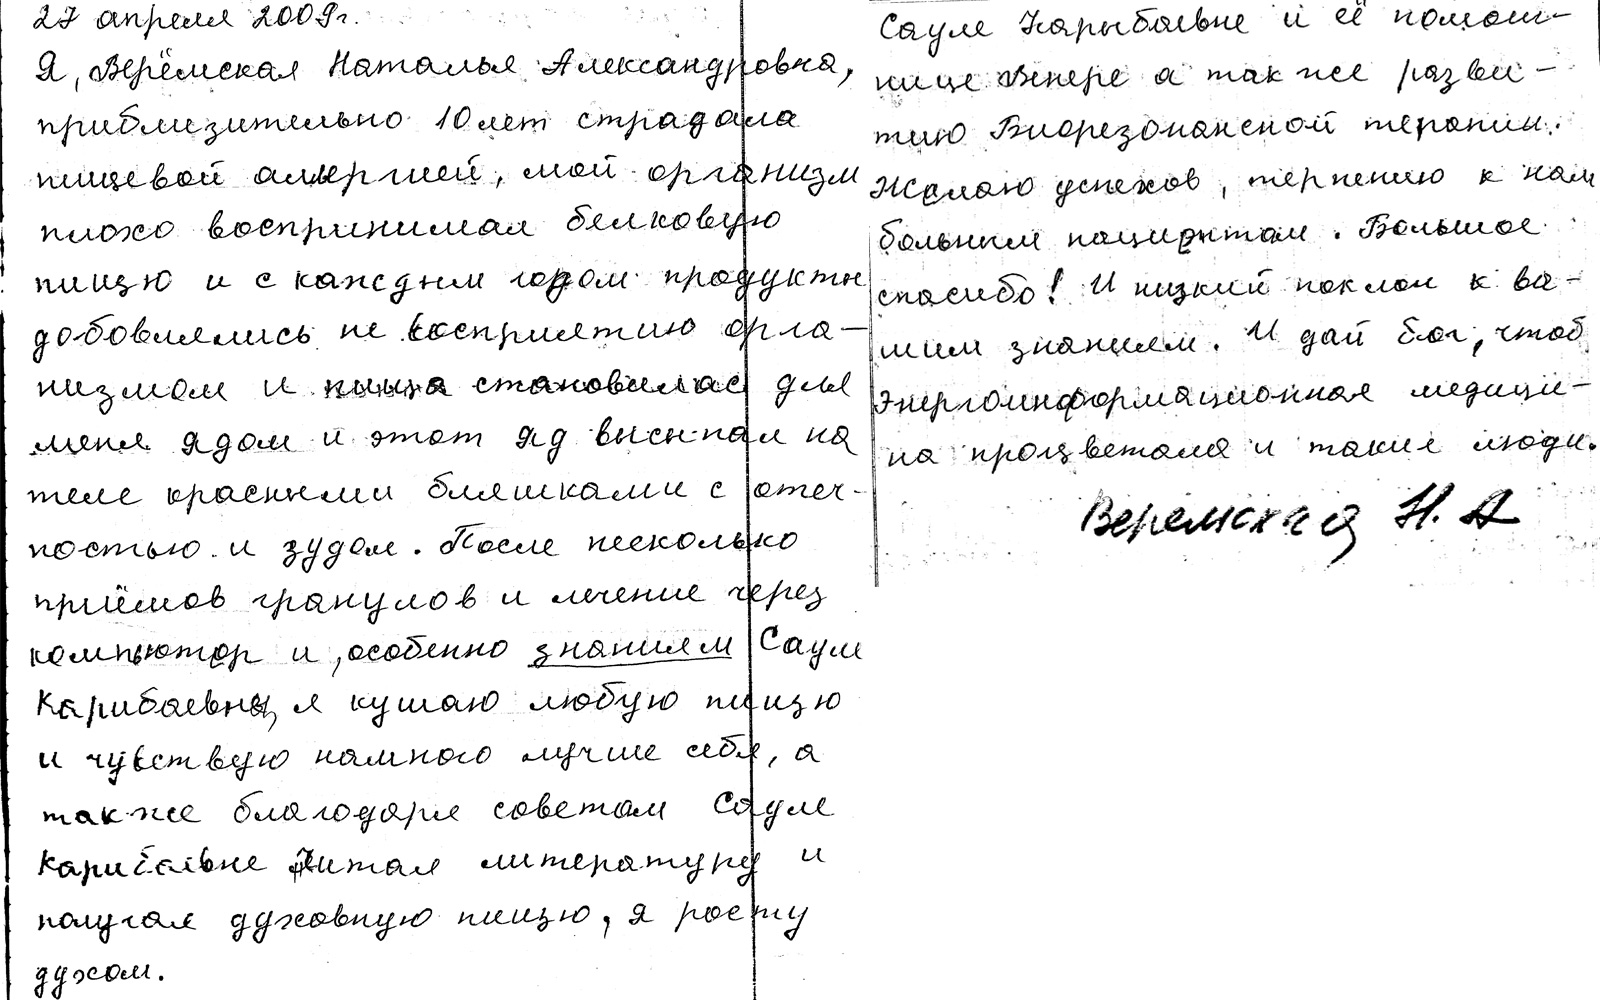 27 апреля 2009г.
Я, Верёмская Наталья Александровна,
приблизительно 10 лет страдала
пищевой алергией, мой организм
плохо воспринимал белковую
пищю и с каждым годом продукты
добовлялись не восприятию орга-
низмом и пища становилас для
меня ядом и этот яд высыпал на
теле красными бляшками с отеч-
ностью и зудом. После несколько
приёмов гранулов и лечение через
компьютор и, особенно знаниям Сауле
Карибаевны, я кушаю любую пищю
и чувствую намного лучше себя, а
так же благодаря советам Сауле
Карибаевне Читая литературу и
получая духовную пищю, я росту
духом.
Сауле Карыбаевне и её помощ-
нице Венере а так же разви-
тию Биорезонансной терапии.
Желаю успехов, терпению к нам
больным пациентам. Большое
спасибо! И низкий поклон к ва-
шим знаниям. И дай бог, чтоб
Энергоинформационная медици-
на процветала и такие люди.
Веремская Н. А